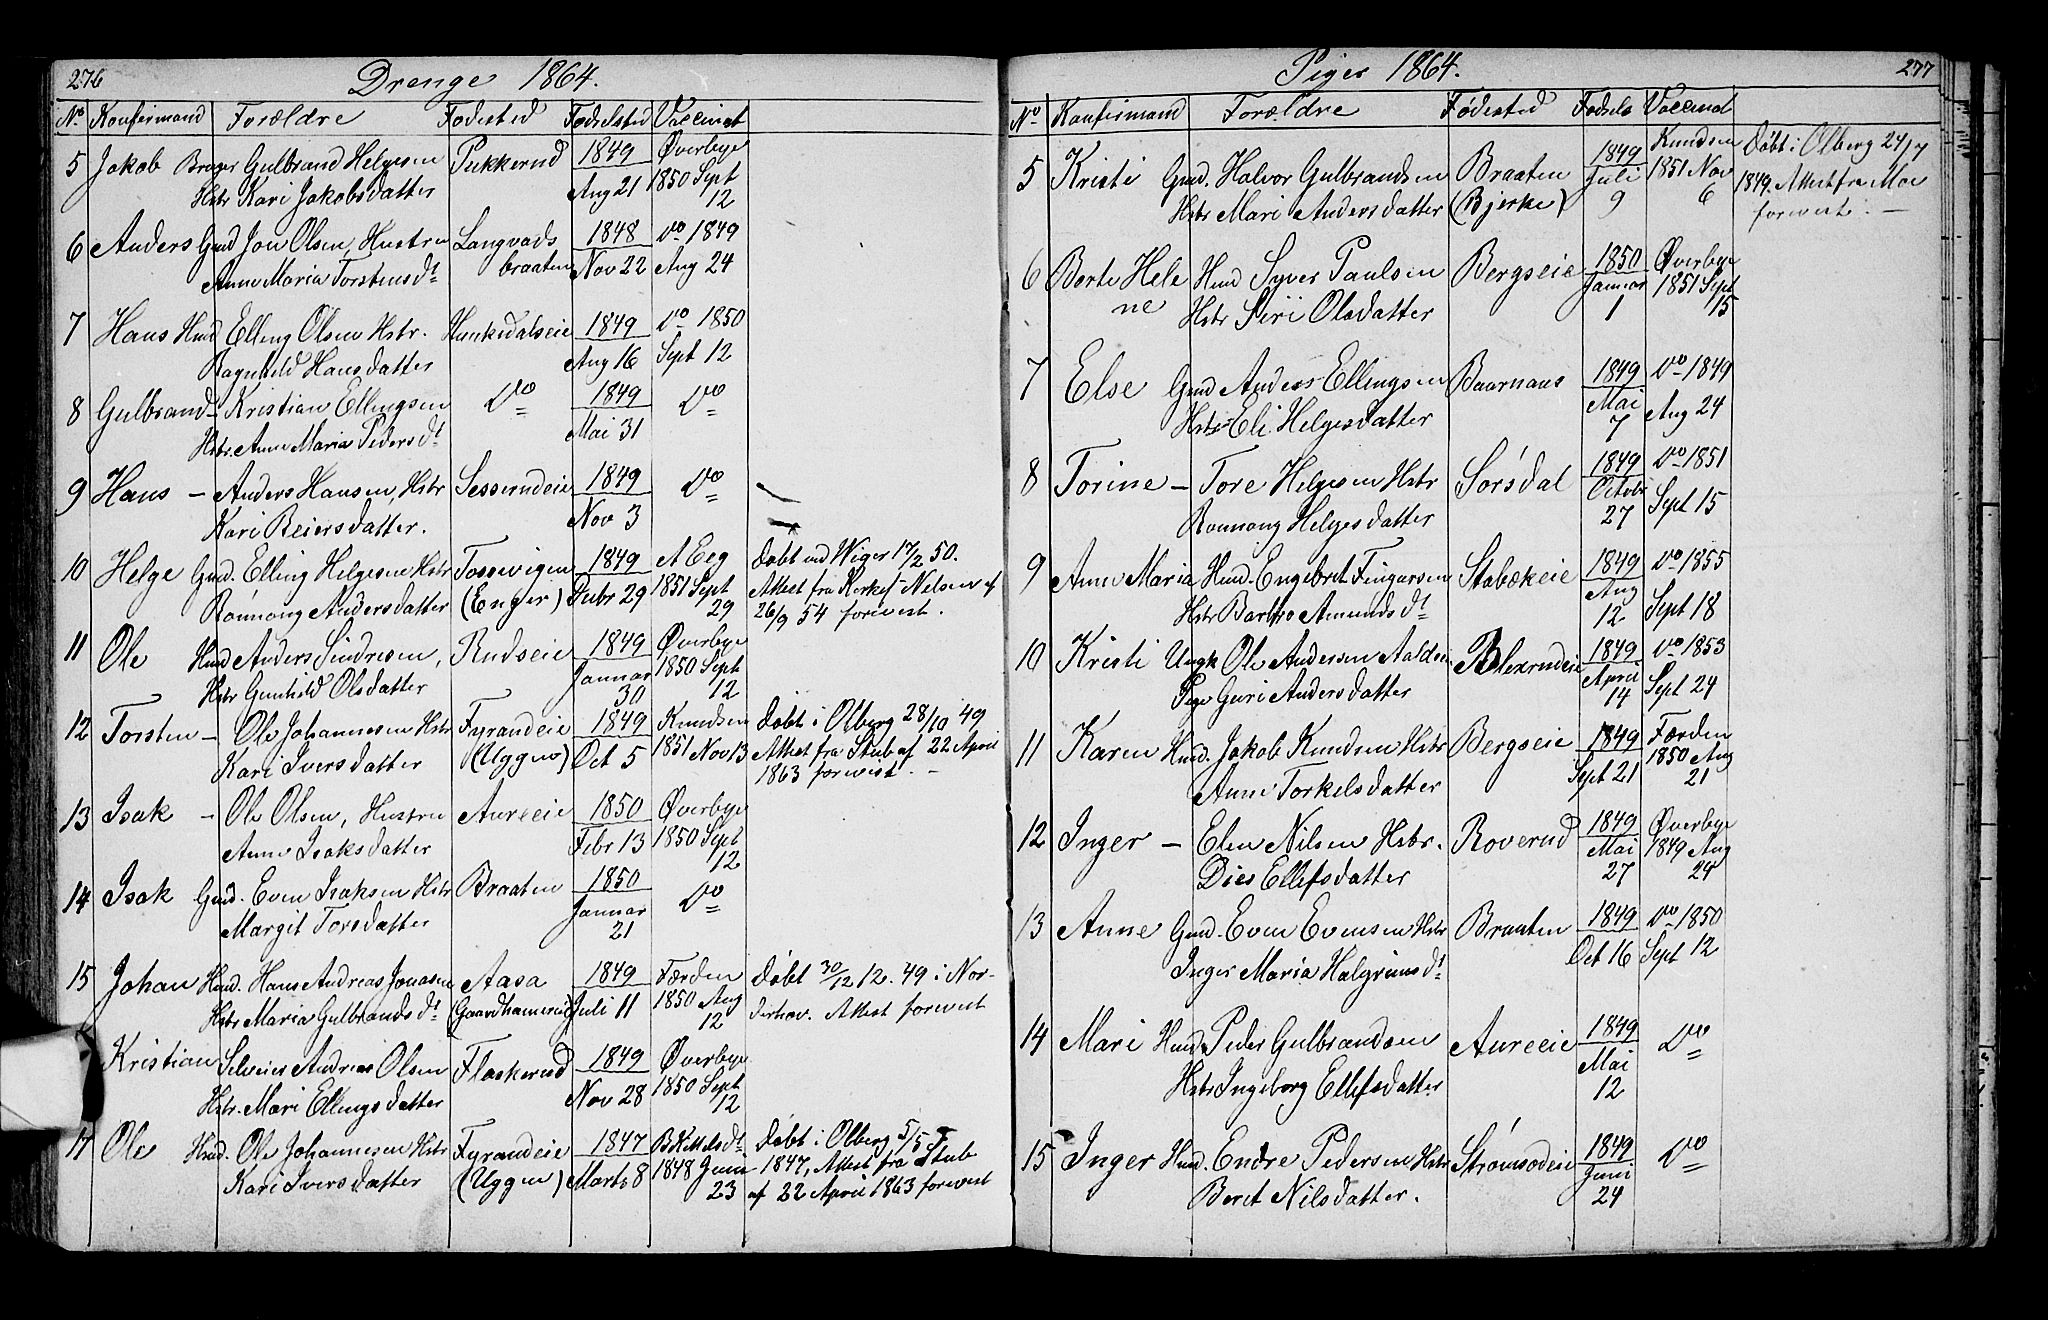 276 Drenge 1864.
No Konfirmand Forældre Fødested Fødselstid Vaccinat
5 Jakob Bruger Gulbrand Helgesen Pukkerud 1849 Øverbye
Hstr Kari Jakobsdatter Aug 21 1850 Sept
12
6 Anders Gmd Jon Olsen, Hustru Langvads 1848 Do 1849
Anne Maria Torstensdt braaten Nov 22 Aug 24
7 Hans Hmd Elling Olsen Hstr. Hunksdalseie 1849 Do 1850
Ragnhild Hansdatter Aug 16 Sept 12
8 Gulbrand – Kristian Ellingsen Do 1849 Do
Hstr. Anne Maria Pedersdt Mai 31
9 Hans – Anders Hansen, Hstr Sesserudeie 1849 Do
Kari Reiersdatter. Nov 3
10 Helge Gmd. Elling Helgesen Hstr Tossevigen 1849 A Eeg Døbt ved Wiger 17/2 50.
Rønnong Andersdatter (Enger) 29 1851 Sept Attest fra Nilsen af
29 26/9 54 forevist.
11 Ole Hmd Anders Sindresen, Rudseie 1849 Øverbye
Hstr Gunhild Olsdatter Januar 1850 Sept
30 12
12 Torsten – Ole Johannesen Hstr Fyrandeie 1849 Knudsen Døbt i Olberg 28/10 49
Kari Iversdatter (Uggen) Oct 5 1851 Nov 13 Attest fra Stub af 22 April
1863 forevist. –
13 Isak – Ole Olsen, Hustru Aureeie 1850 Øverbye
Anne Isaksdatter Febr 13 1850 Sept
12
14 Isak Gmd. Even Isaksen Hstr Braaten 1850 Do
Margit Torsdatter Januar
21
15 Johan Hmd. Hans Andreas Jonasen Aasa 1849 Færden Døbt 30/12 12. 49 i Nor-
Hstr Maria Gulbrandsdt (Gaardhammereie) Juli 11 1850 Aug derhov. Attest forevist
12
Kristian Selveier Andreas Olsen Flaskerud 1849 Øverbye
Hstr. Mari Ellingsdatter Nov 28 1850 Sept
12
17 Ole Hmd. Ole Johannesen Hstr Fyrandeie 1847 B Kittelsdt Døbt i Olberg 5/5
Kari Iversdatter (Uggen) Marts 8 1848 Juni 1847, Attest fra Stub
23 af 22 April 1863 forevist
Piger 1864. 277
No Konfirmand Forældre Fødested Fødsels Vaccinat
5 Kristi Gmd. Halvor Gulbrandsen Braaten 1849 Knudsen Døbt i Olberg 24/7
Hstr Mari Andersdatter (Bjerke) Juli 1851 Nov 1849, Attest fra Moe
9 6 forevist. –
6 Berte Hele Hmd Syver Paulsen Bergseie 1850 Øverbye
ne Hstr Siri Olsdatter Januar 1851 Sept
1 15
7 Else Gmd Anders Ellingsen Baarnaas 1849 Do 1849
Hstr Eli Helgesdatter Mai Aug 24
7
8 Torine – Tore Helgesen Hstr Sørsdal 1849 Do 1851
Rønnong Helgesdatter Octobr Sept 15
27
9 Anne Maria Hmd. Engebret Fingarsen Stabækeie 1849 Do 1855
Hstr Barbro Amundsdt Aug Sept 18
12
10 Kristi Ungk Ole Andersen 1849 Do 1853
Pige Guri Andersdatter April Sept 24
14
11 Karen Hmd. Jakob Knudsen Hstr Bergseie 1849 Færden
Anne Torkelsdatter Sept 21 1850 Aug
21
12 Inger – Elen Nilsen Hstr. Roverud 1849 Øverbye
Dies Ellefsdatter Mai 1849 Aug
27 24
13 Anne Gmd. Even Evensen Hstr Braaten 1849 Do 1850
Inger Maria Halgrimsdt Oct 16 Sept 12
14 Mari Hmd. Peder Gulbrandsen Aureeie 1849 Do
Hstr Ingeborg Ellefsdatter Mai
12
15 Inger Hmd. Endre Pedersen Hstr Strømsodeie 1849 Do
Beret Nilsdatter. Juni
24